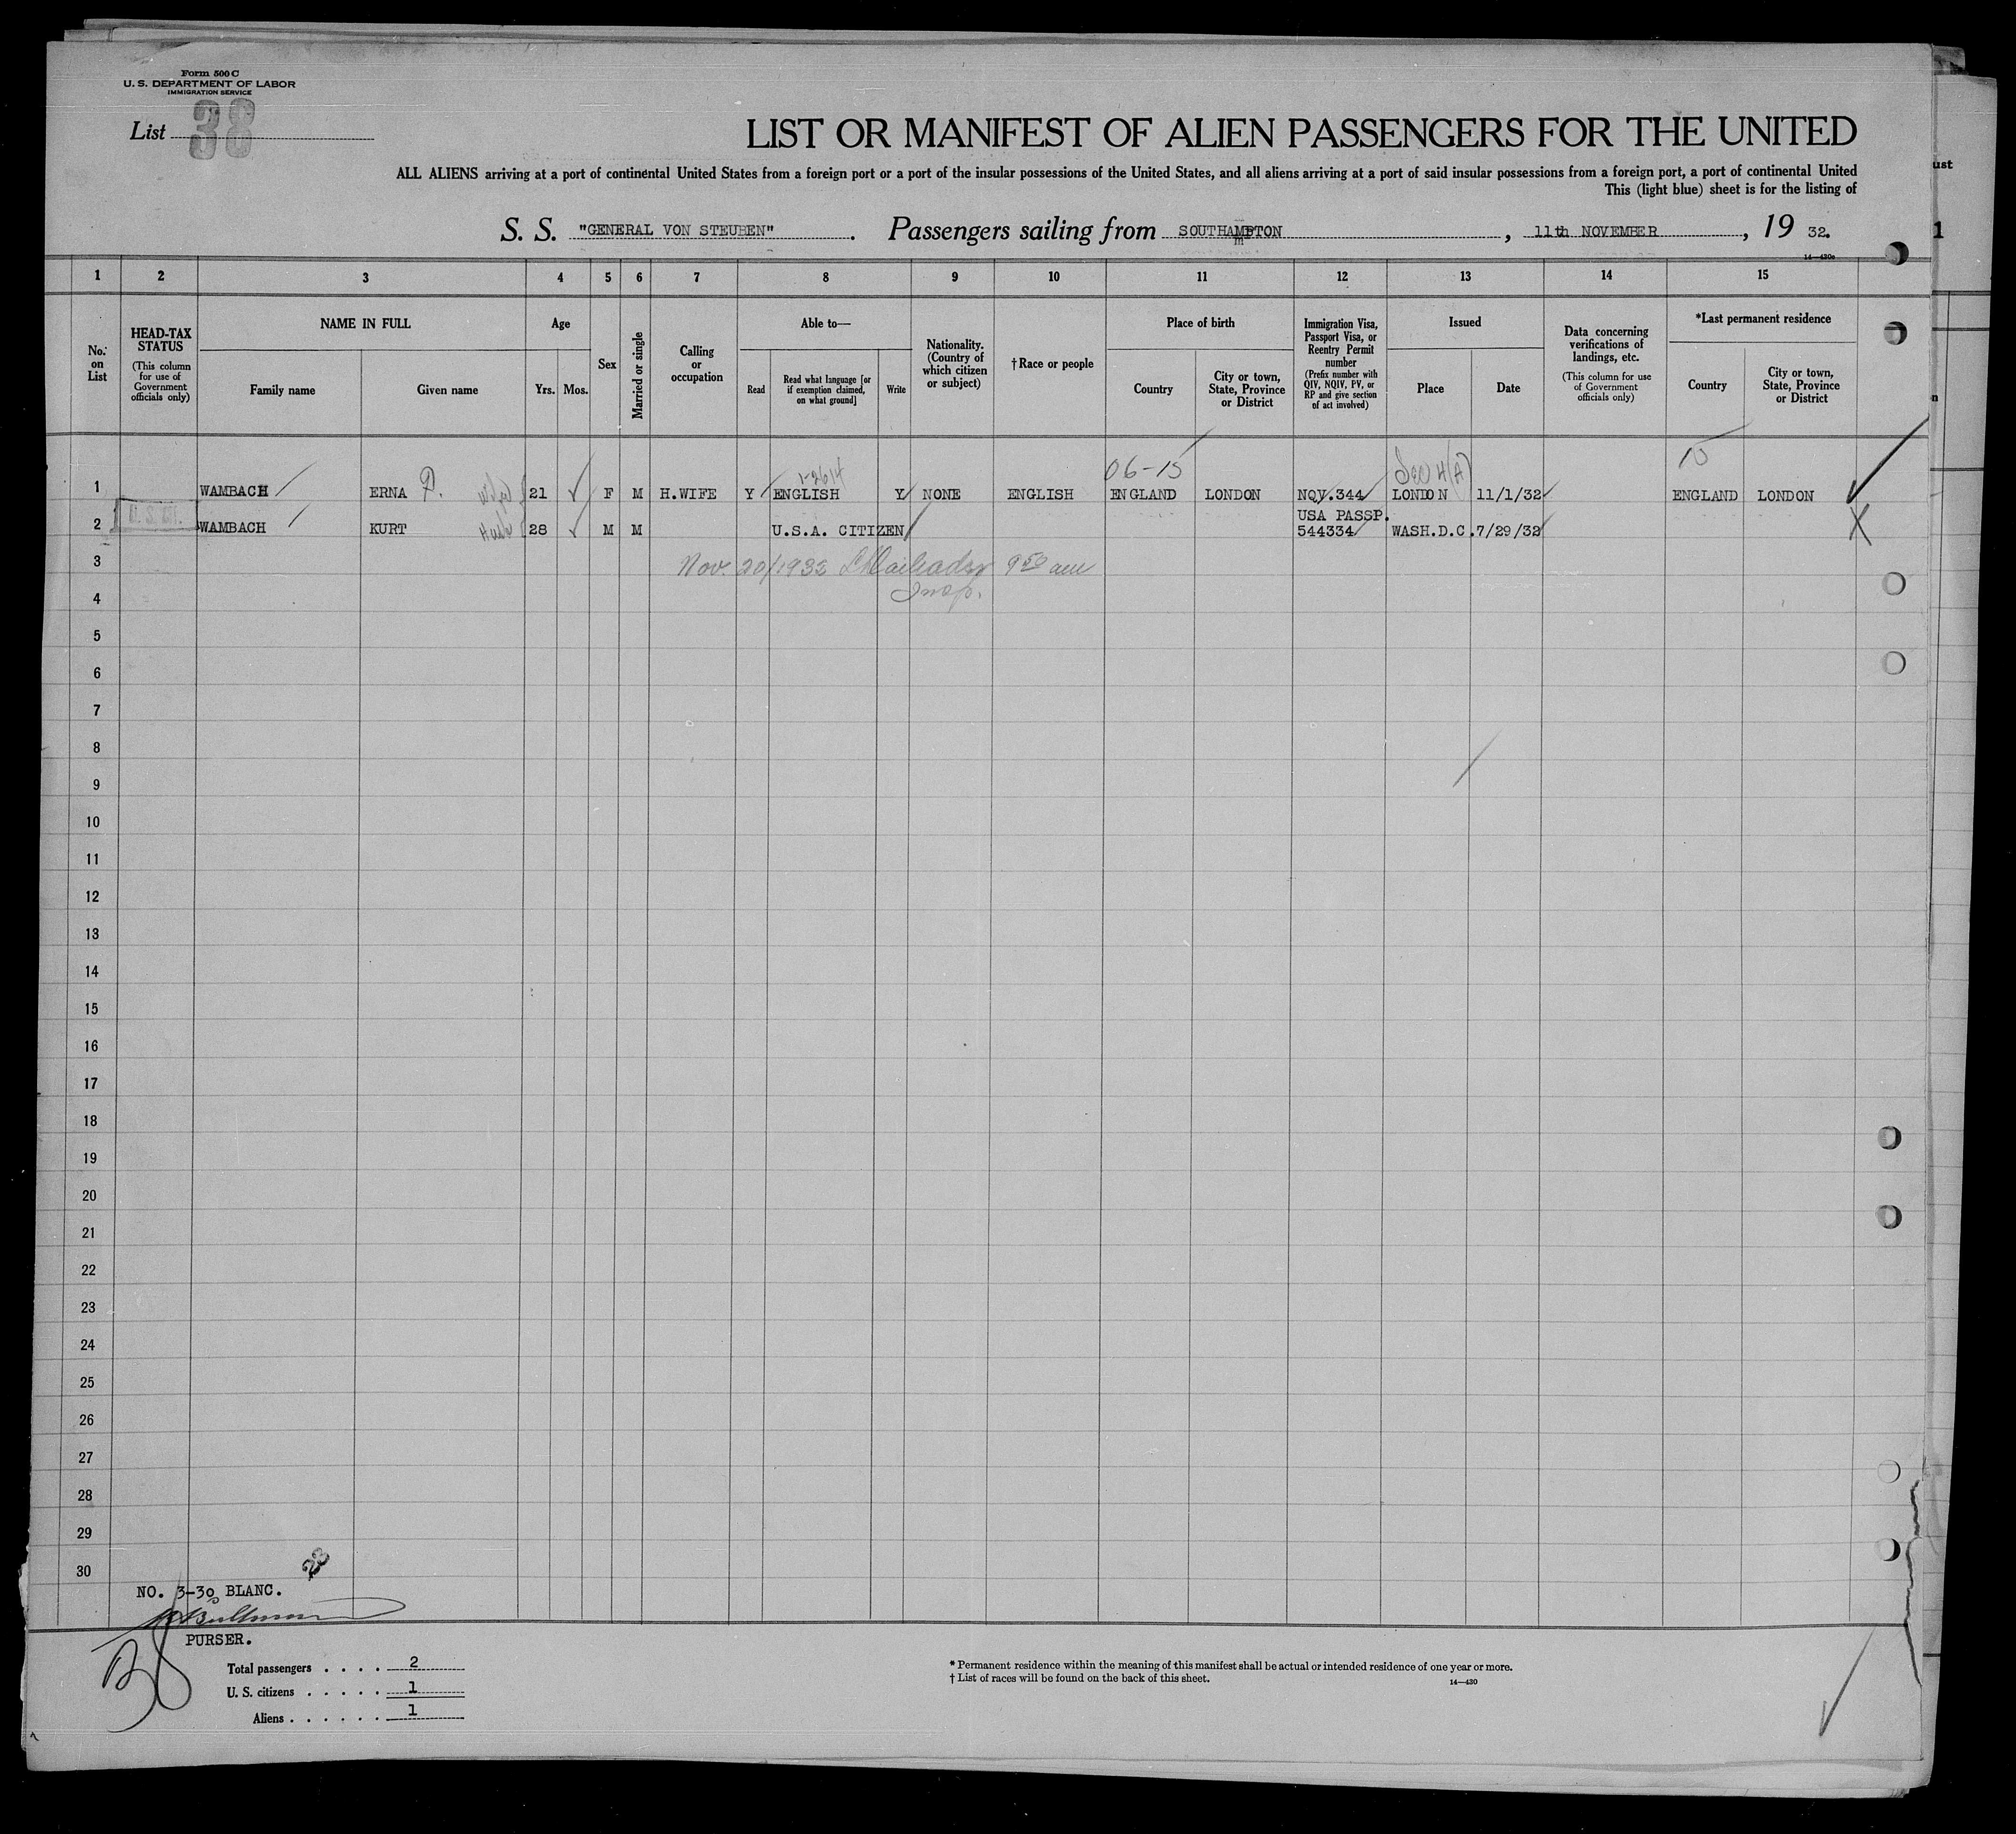 Form 500 C
U. S. DEPARTMENT OF LABOR
IMMIGRATION SERVICE
List 38
LIST OR MANIFEST OF ALIEN PASSENGERS FOR THE UNITED
ALL ALIENS arriving at a port of continental United States from a foreign port or a port of the insular possessions of the United States, and all aliens arriving at a port of said insular possessions from a foreign port, a port of continental United
This (light blue) sheet is for the listing of
S. S. "GENERAL VON STEUBEN". Passengers sailing from SOUTHAMPTON, 11th NOVEMBER, 19 32.
14—430c
1 2 3 4 5 6 7 8 9 10 11 12 13 14 15
No. on List
HEAD-TAX STATUS
(This column for use of Government officials only)
NAME IN FULL
Family name
Given name
Age
Yrs. Mos.
Sex
Married or single
Calling or occupation
Able to—
Read
Read what language [or if exemption claimed, on what ground]
Write
Nationality. (Country of which citizen or subject)
† Race or people
Place of birth
Country
City or town, State, Province or District
Immigration Visa, Passport Visa, or Reentry Permit number
(Prefix number with QIV, NQIV, PV, or RP and give section of act involved)
Issued
Place
Date
Data concerning verifications of landings, etc.
(This column for use of Government officials only)
*Last permanent residence
Country
City or town, State, Province or District
1-2614 06-15 Sec 4(A) 15
1 WAMBACH ERNA P. Wife 21 F M H.WIFE Y ENGLISH Y NONE ENGLISH ENGLAND LONDON NQV.344 LONDON 11/1/32 ENGLAND LONDON
USA PASSP.
2 WAMBACH KURT Husb 28 M M U.S.A. CITIZEN 544334 WASH.D.C. 7/29/32 X
3 Nov. 20/1932 9 50 am
4 Insp.
5
6
7
8
9
10
11
12
13
14
15
16
17
18
19
20
21
22
23
24
25
26
27
28
29
30
NO. 3-30 BLANC.
PURSER.
Total passengers . . . . 2
U. S. citizens . . . . . 1
Aliens . . . . . . 1
* Permanent residence within the meaning of this manifest shall be actual or intended residence of one year or more.
† List of races will be found on the back of this sheet.
14—430